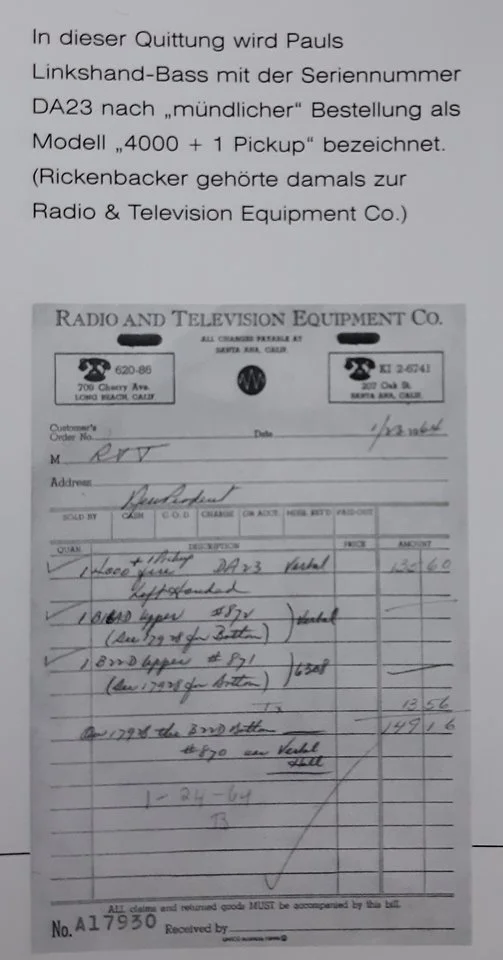 In dieser Quittung wird Pauls
Linkshand-Bass mit der Seriennummer
DA23 nach „mündlicher“ Bestellung als
Modell „4000 + 1 Pickup“ bezeichnet.
(Rickenbacker gehörte damals zur
Radio & Television Equipment Co.)
RADIO AND TELEVISION EQUIPMENT CO.
ALL CHARGES PAYABLE AT
SANTA ANA, CALIF.
620-86
709 Cherry Ave.
LONG BEACH, CALIF.
KI 2-6741
207 Oak St.
SANTA ANA, CALIF.
Customer's
Order No.
Date 1/23 1964
M R T
Address
SOLD BY CASH C.O.D. CHARGE ON ACCT. MDSE. RET'D PAID OUT
QUAN. DESCRIPTION PRICE AMOUNT
+ 1 Pickup
1 4000 DA23 Verbal 135 60
Left Handed
1 Upper #872 Verbal
(See 17928 for Bottom)
1 B22D Upper #871 6308
(See 17928 for Bottom)
13 56
On 17928 the B22D Bottom 149 16
#870 Verbal
1-24-64
ALL claims and returned goods MUST be accompanied by this bill.
No. A17930 Received by